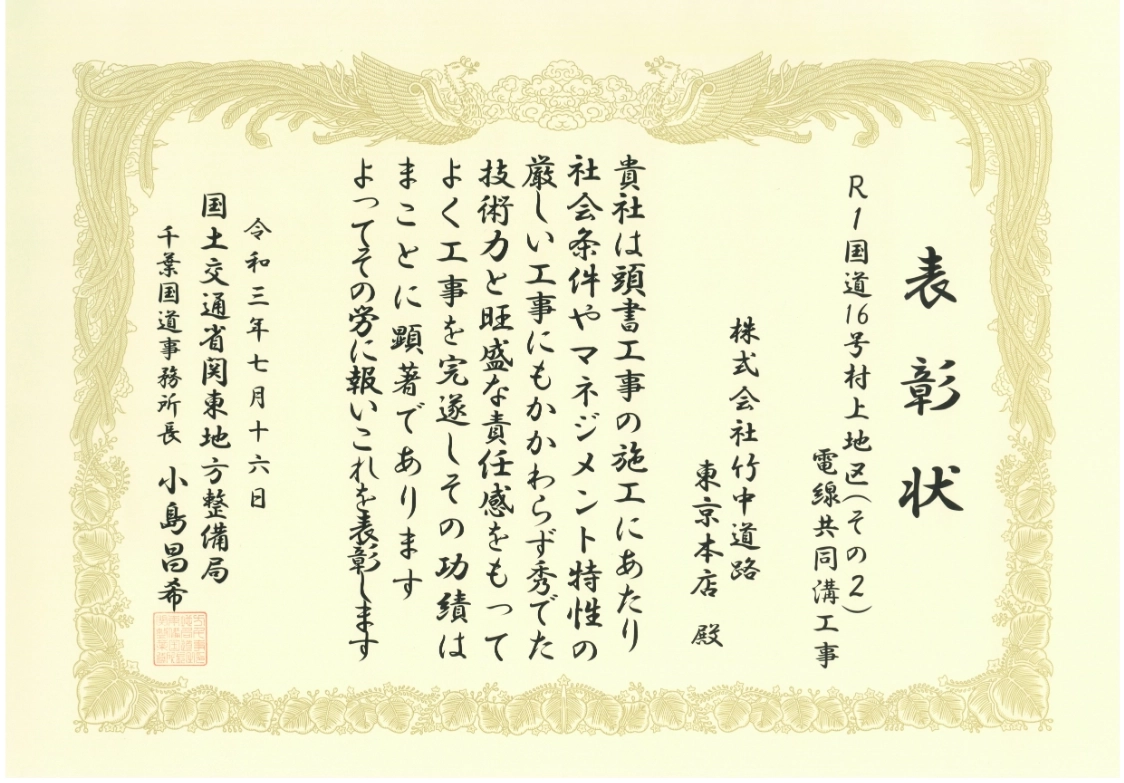 表彰状
R1国道16号村上地区(その2)
電線共同溝工事
株式会社竹中道路
東京本店 殿
貴社は頭書工事の施工にあたり
社会条件やマネジメント特性の
厳しい工事にもかかわらず秀でた
技術力と旺盛な責任感をもって
よく工事を完遂しその功績は
まことに顕著であります
よってその労に報いこれを表彰します
令和三年七月十六日
国土交通省関東地方整備局
千葉国道事務所長 小島昌希